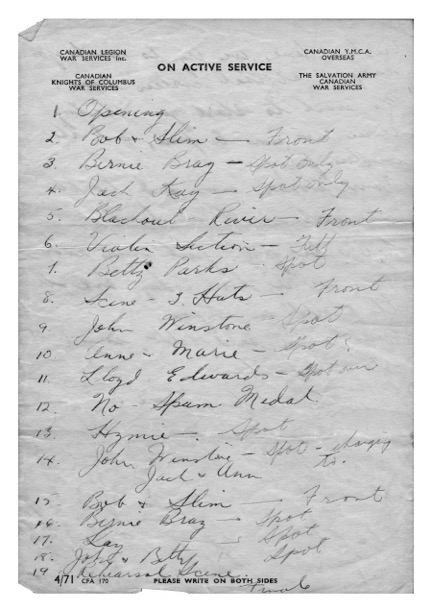 CANADIAN LEGION
WAR SERVICES Inc.
CANADIAN
KNIGHTS OF COLUMBUS
WAR SERVICES
ON ACTIVE SERVICE
CANADIAN Y.M.C.A.
OVERSEAS
THE SALVATION ARMY
CANADIAN
WAR SERVICES
1. Opening
2. Bob & Slim — Front
3. Bernie Bray — Spot Only
4. Jack Kay — Spot Only
5. Blackout River — Front
6. Violin Section — Full
7. Betty Parks Spot
8. Scene - 3 Hats — Front
9. John Winstone Spot
10. Anne & Marie — Spot
11. Lloyd Edwards — Spot
12. No - Spam Medal
13. Hymie. Spot
14. John Winstone — Spot — changing
to
Jack & Ann
15. Bob & Slim — Front
16. Bernie Bray — Spot
17. Spot
18. John & Betty Spot
19. Rehearsal Scene
4/71 CFA 170 PLEASE WRITE ON BOTH SIDES